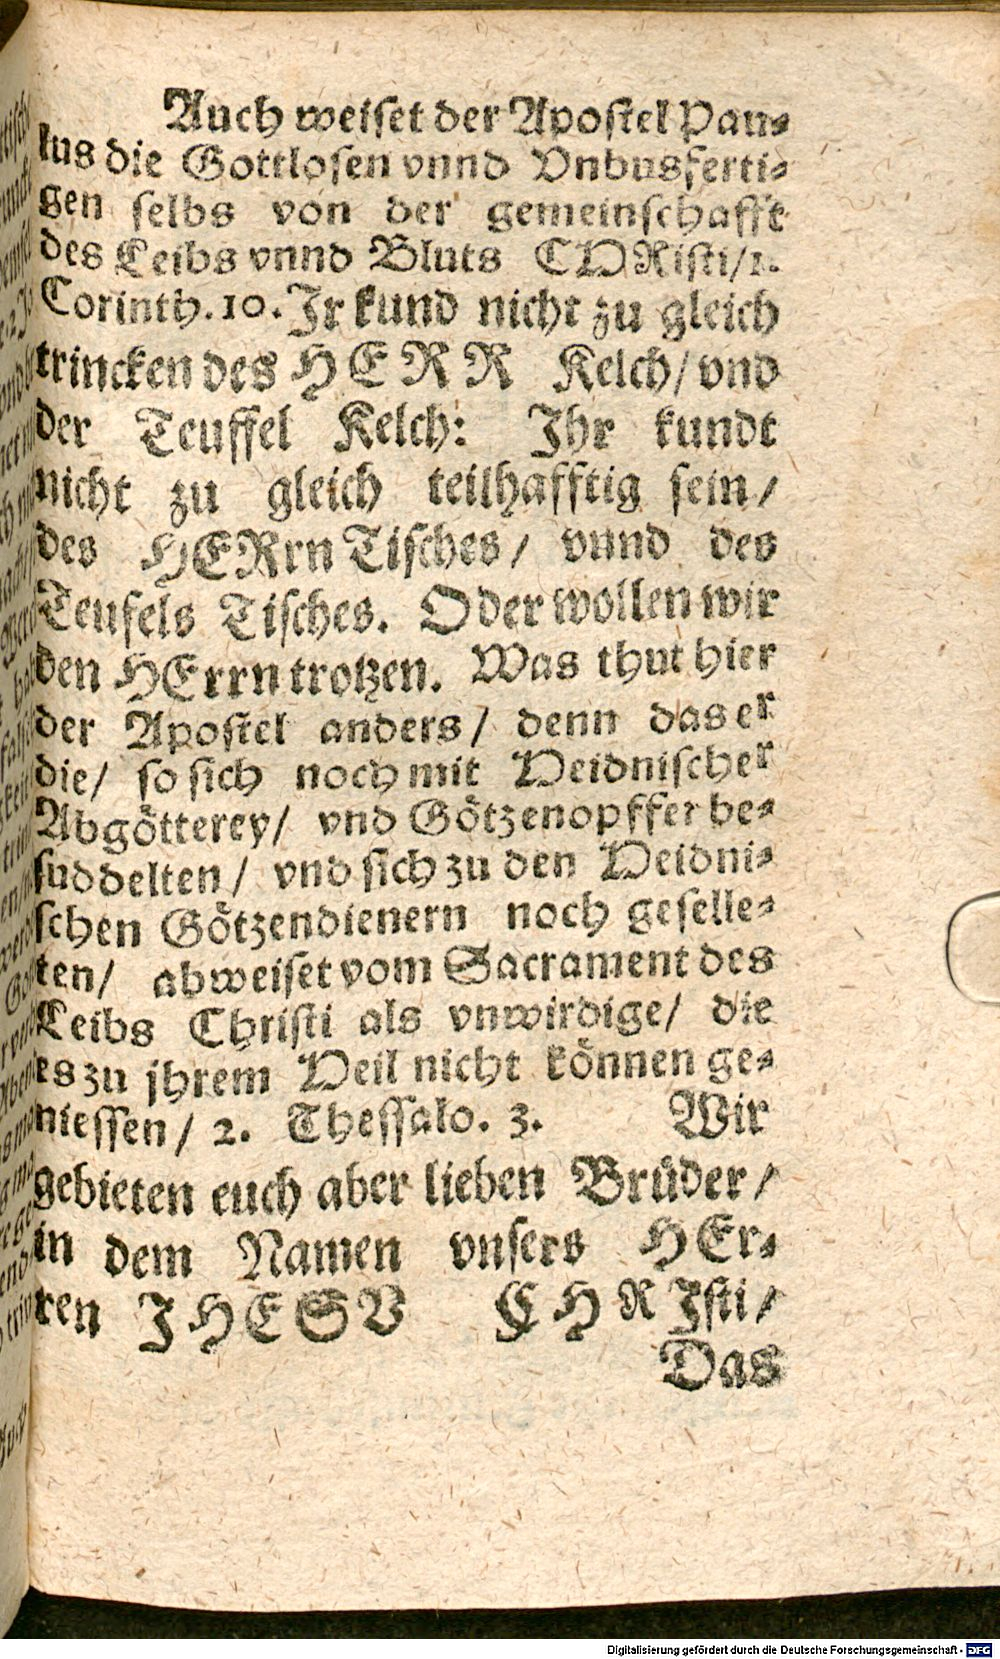 Auch weiset der Apostel Pau⸗
lus die Gottlosen vnnd Vnbusferti⸗
gen selbs von der gemeinschafft
des Leibs vnnd Bluts CHRisti/1.
Corinth.10. Jr kund nicht zu gleich
trincken des HERR Kelch/ vnd
der Teuffel Kelch: Ihr kundt
nicht zu gleich teilhafftig sein/
des HERrn Tisches/ vnnd des
Teufels Tisches. Oder wollen wir
den HErrn trotzen. Was thut hier
der Apostel anders/ denn das er
die/ so sich noch mit Heidnischer
Abgötterey/ vnd Götzenopffer be⸗
suddelten/ vnd sich zu den Heidni⸗
schen Götzendienern noch geselle⸗
ten/ abweiset vom Sacrament des
Leibs Christi als vnwirdige/ die
es zu jhrem Heil nicht können ge⸗
niessen/ 2. Thessalo. 3. Wir
gebieten euch aber lieben Brüder/
in dem Namen vnsers HEr⸗
ren JHESV CHRJsti/
Das
Digitalisierung gefördert durch die Deutsche Forschungsgemeinschaft - DFG